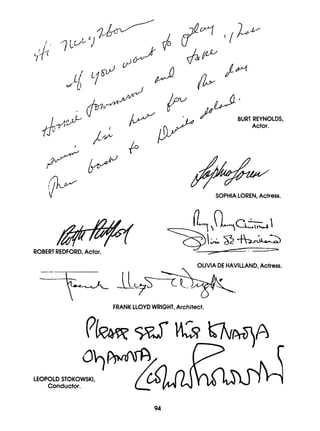 Hi Neighbor
If you want to play
Hoosie Tomorrow and take
swim in here for the day
Then back to Devils Island.
BURT REYNOLDS,
Actor.
Sophia Loren
SOPHIA LOREN, Actress.
Robt Redford
ROBERT REDFORD, Actor.
Merry, Merry Christmas!
Olivia de Havilland
OLIVIA DE HAVILLAND, Actress.
Frank Lloyd Wright
FRANK LLOYD WRIGHT, Architect.
Please send this to NADYA
CHANOVA
Leopold Stokowski
LEOPOLD STOKOWSKI,
Conductor.
94